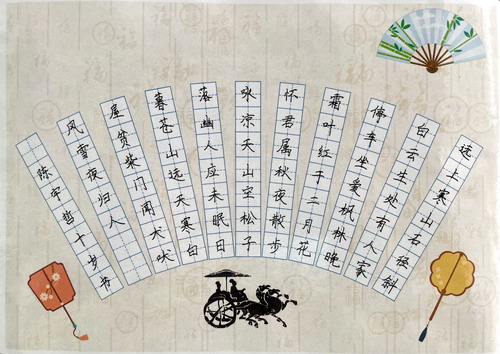 远上寒山石径斜
白云生处有人家
停车坐爱枫林晚
霜叶红于二月花
怀君属秋夜散步
咏凉天山空松子
落幽人应未眠日
暮苍山远天寒白
屋贫柴门闻犬吠
风雪夜归人
陈宇哲十岁书